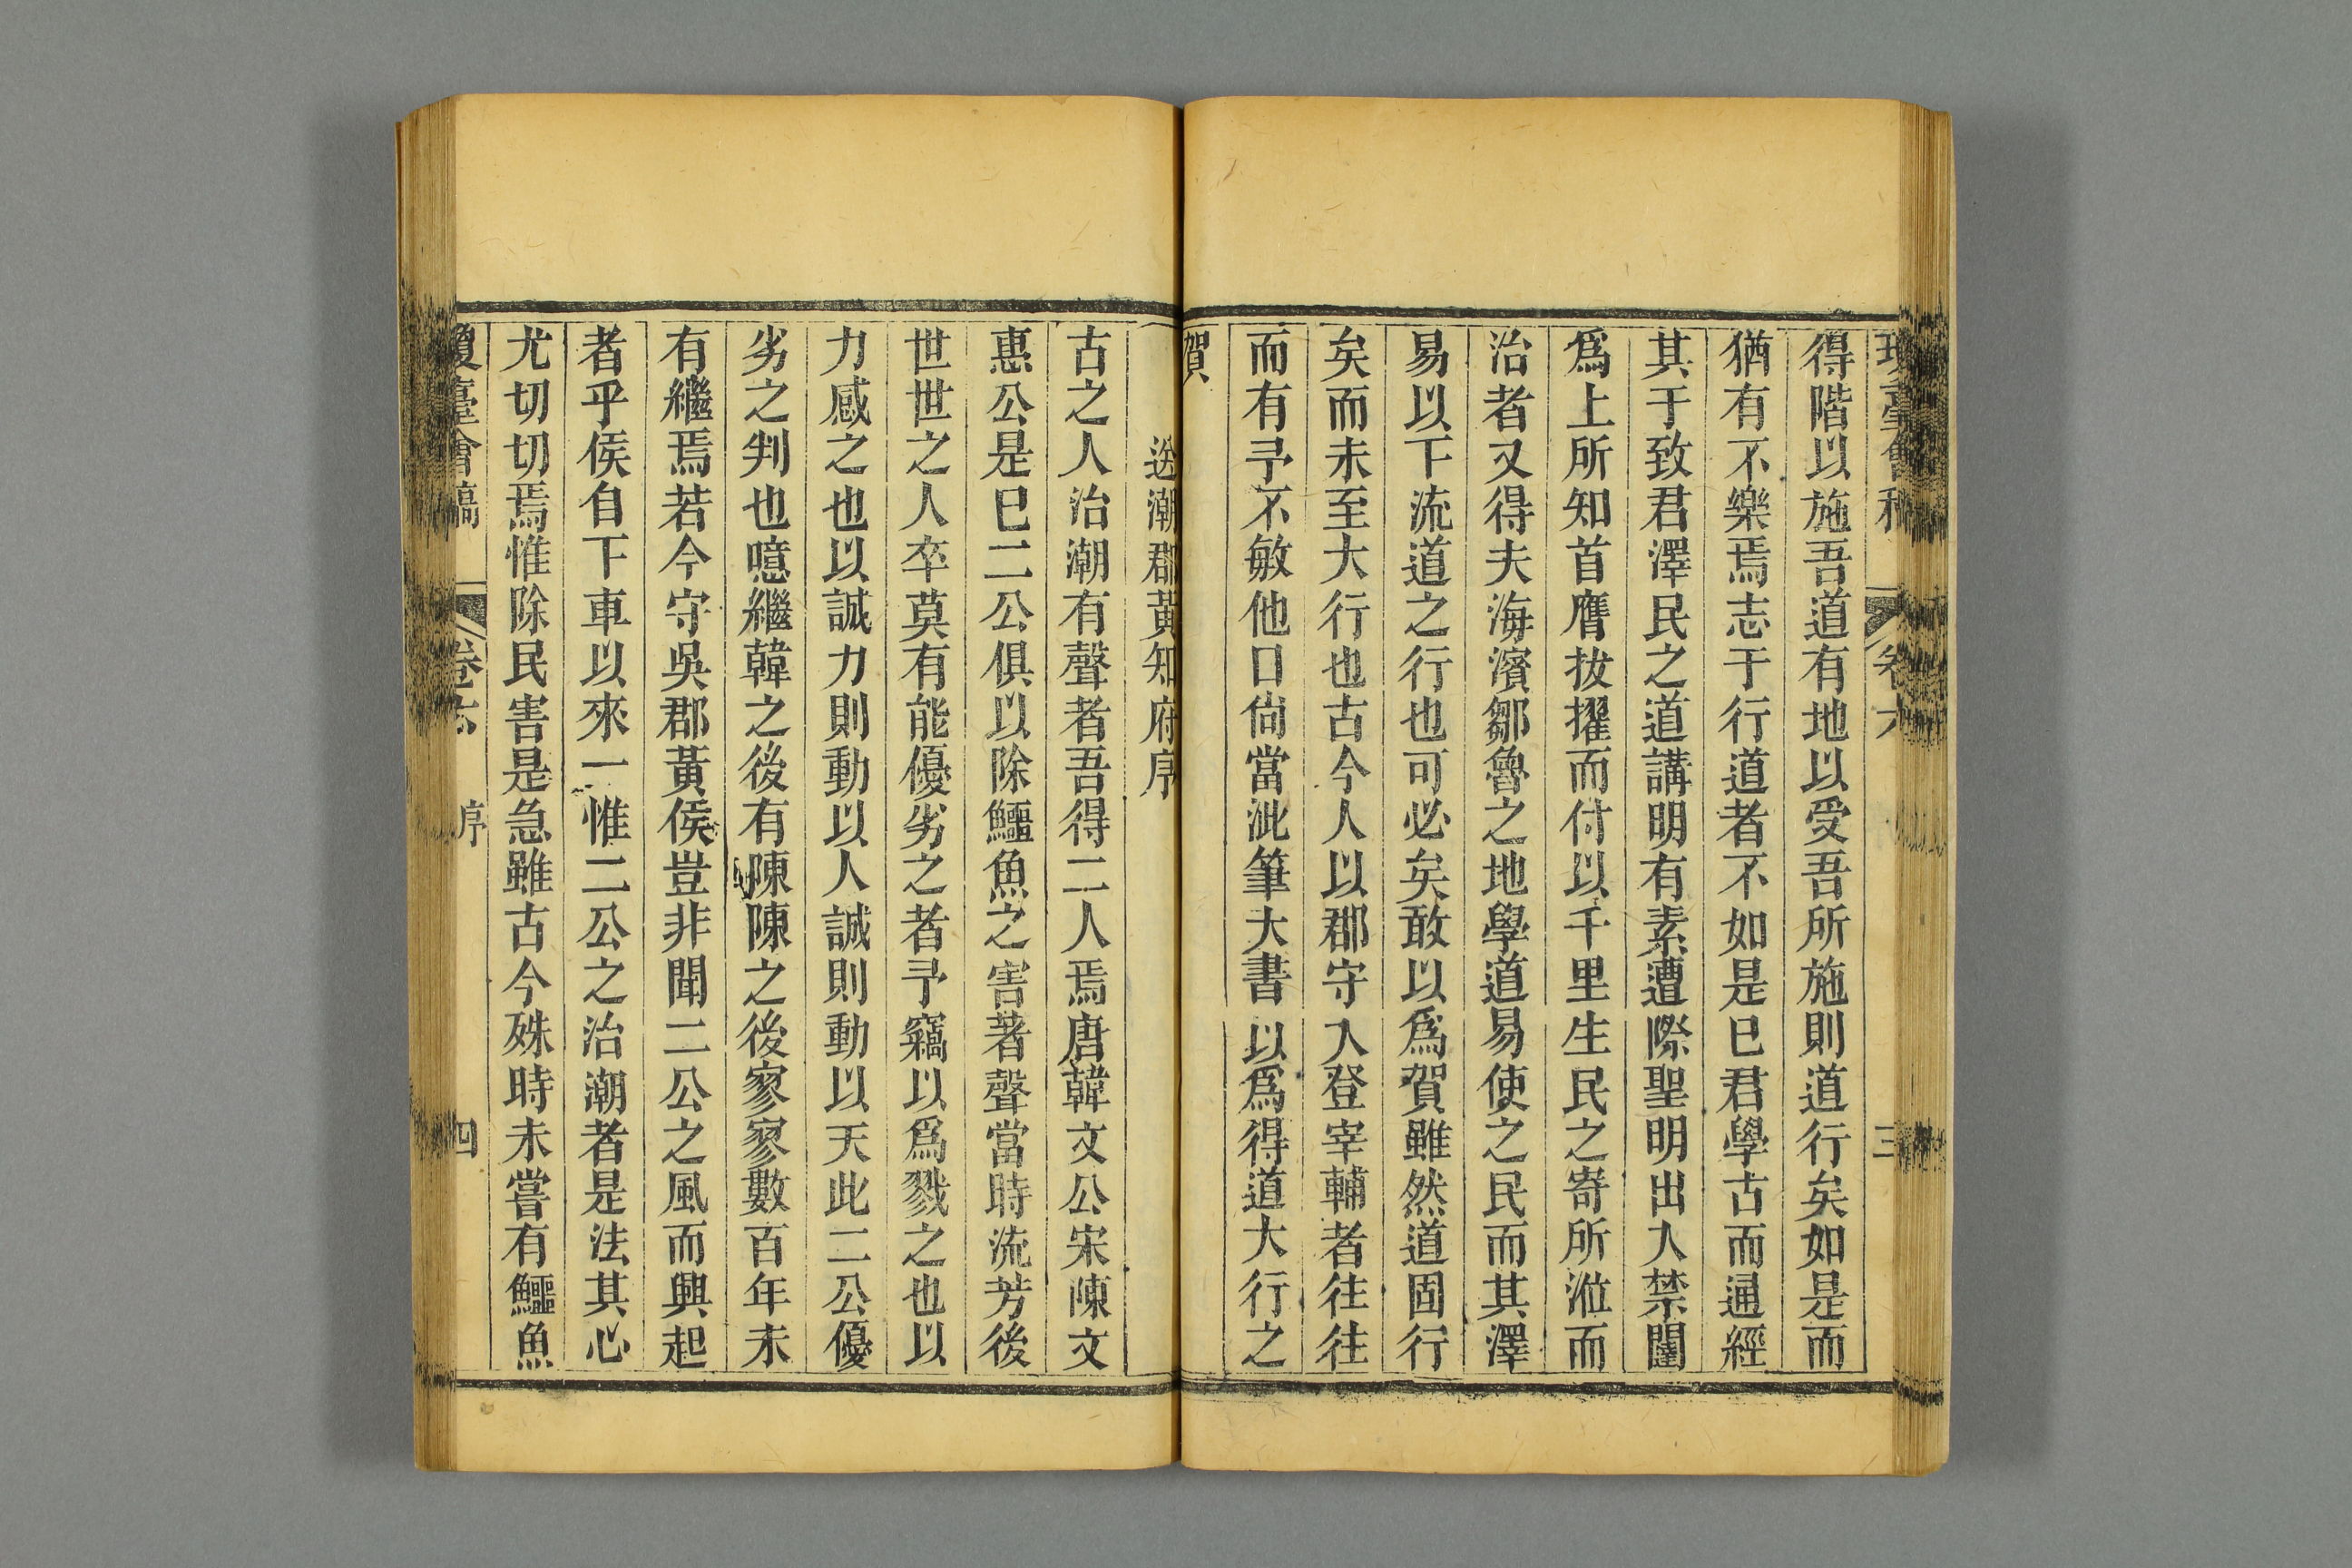 得階以施吾道有地以受吾所施則道行矣如是而
猶有不樂焉志于行道者不如是巳君學古而通經
其于致君澤民之道講明有素遭際聖明出入禁闥
爲上所知首膺拔擢而付以千里生民之寄所涖而
治者又得夫海濱鄒魯之地學道易使之民而其澤
易以下流道之行也可必矣敢以爲賀雖然道固行
矣而未至大行也古今人以郡守入登宰輔者往往
而有予不敏他日尙當泚筆大書以爲得道大行之
賀
送潮郡黃知府序
古之人治潮有聲者吾得二人焉唐韓文公宋陳文
惠公是巳二公俱以除鱷魚之害著聲當時流芳後
世世之人卒莫有能優劣之者予竊以爲戮之也以
力感之也以誠力則動以人誠則動以天此二公優
劣之判也噫繼韓之後有陳陳之後寥寥數百年未
有繼焉若今守吳郡黃侯豈非聞二公之風而興起
者乎侯自下車以來一惟二公之治潮者是法其心
尤切切焉惟除民害是急雖古今殊時未嘗有鱷魚
臺會稿 卷六 序 四